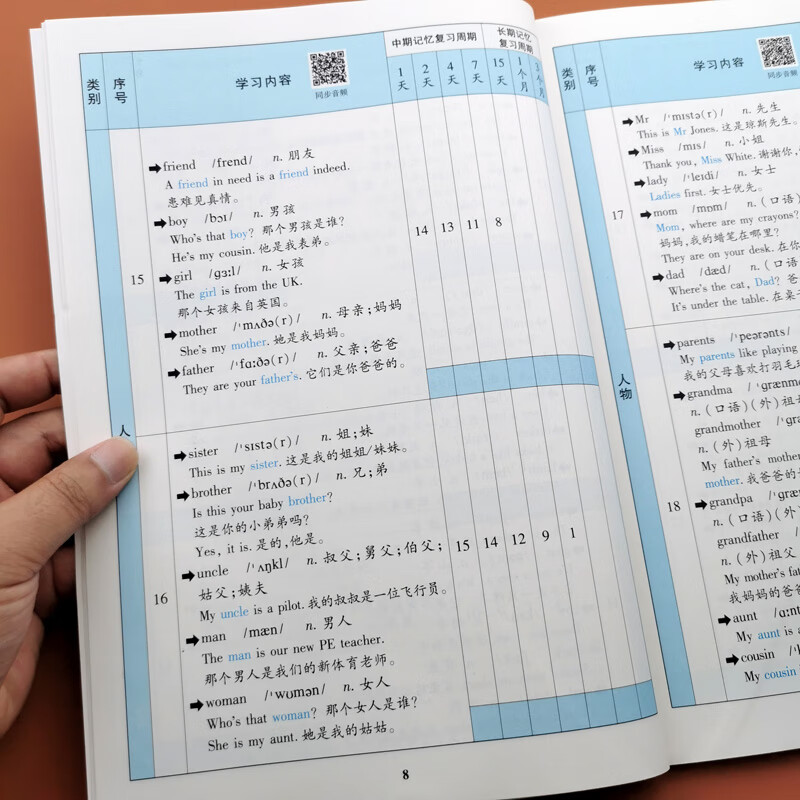 类别
序号
学习内容
同步音频
中期记忆复习周期
长期记忆复习周期
1天
2天
4天
7天
15天
1个月
3个月
15
friend /frend/ n. 朋友
A friend in need is a friend indeed.
患难见真情。
boy /bɔɪ/ n. 男孩
Who's that boy? 那个男孩是谁?
He's my cousin. 他是我表弟。
girl /gɜːl/ n. 女孩
The girl is from the UK.
那个女孩来自英国。
mother /ˈmʌðə(r)/ n. 母亲;妈妈
She's my mother. 她是我妈妈。
father /ˈfɑːðə(r)/ n. 父亲;爸爸
They are your father's. 它们是你爸爸的。
14 13 11 8
人
16
sister /ˈsɪstə(r)/ n. 姐;妹
This is my sister. 这是我的姐姐/妹妹。
brother /ˈbrʌðə(r)/ n. 兄;弟
Is this your baby brother?
这是你的小弟弟吗?
Yes, it is. 是的,他是。
uncle /ˈʌŋkl/ n. 叔父;舅父;伯父;
姑父;姨夫
My uncle is a pilot. 我的叔叔是一位飞行员。
man /mæn/ n. 男人
The man is our new PE teacher.
那个男人是我们的新体育老师。
woman /ˈwʊmən/ n. 女人
Who's that woman? 那个女人是谁?
She is my aunt. 她是我的姑姑。
15 14 12 9 1
8
类别
序号
学习内容
同步音频
17
Mr /ˈmɪstə(r)/ n. 先生
This is Mr Jones. 这是琼斯先生。
Miss /mɪs/ n. 小姐
Thank you, Miss White. 谢谢你,
lady /ˈleɪdi/ n. 女士
Ladies first. 女士优先。
mom /mɒm/ n. (口语)
Mom, where are my crayons?
妈妈,我的蜡笔在哪里?
They are on your desk. 在你
dad /dæd/ n. (口语)
Where's the cat, Dad? 爸
It's under the table. 在桌子
人物
18
parents /ˈpeərənts/
My parents like playing
我的父母喜欢打羽毛球
grandma /ˈgrænmɑ
n. (口语)(外)祖母
grandmother /ˈgra
n. (外)祖母
My father's mother
mother. 我爸爸的
grandpa /ˈgræn
n. (口语)(外)
grandfather /
n. (外)祖父
My mother's fat
我妈妈的爸爸
aunt /ɑːnt
My aunt is a
cousin /ˈk
My cousin